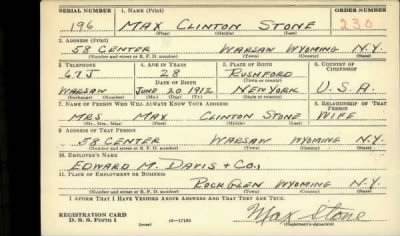 SERIAL NUMBER 1. NAME (Print) ORDER NUMBER
196 MAX CLINTON STONE 230
(First) (Middle) (Last)
2. ADDRESS (Print)
58 CENTER WARSAW WYOMING N.Y.
(Number and street or R. F. D. number) (Town) (County) (State)
3. TELEPHONE 4. AGE IN YEARS 5. PLACE OF BIRTH 6. COUNTRY OF CITIZENSHIP
67J 28 RUSHFORD
DATE OF BIRTH (Town or county)
WARSAW JUNE 20 1912 NEW YORK U.S.A.
(Exchange) (Number) (Mo.) (Day) (Yr.) (State or country)
7. NAME OF PERSON WHO WILL ALWAYS KNOW YOUR ADDRESS 8. RELATIONSHIP OF THAT PERSON
MRS MAX CLINTON STONE WIFE
(Mr., Mrs., Miss) (First) (Middle) (Last)
9. ADDRESS OF THAT PERSON
58 CENTER WARSAW WYOMING N.Y.
(Number and street or R. F. D. number) (Town) (County) (State)
10. EMPLOYER'S NAME
EDWARD M. DAVIS & CO.,
11. PLACE OF EMPLOYMENT OR BUSINESS
ROCK GLEN WYOMING N.Y.
(Number and street or R. F. D. number) (Town) (County) (State)
I AFFIRM THAT I HAVE VERIFIED ABOVE ANSWERS AND THAT THEY ARE TRUE.
REGISTRATION CARD
D. S. S. FORM 1 (over) 16—17105 Max Stone
(Registrant's signature)